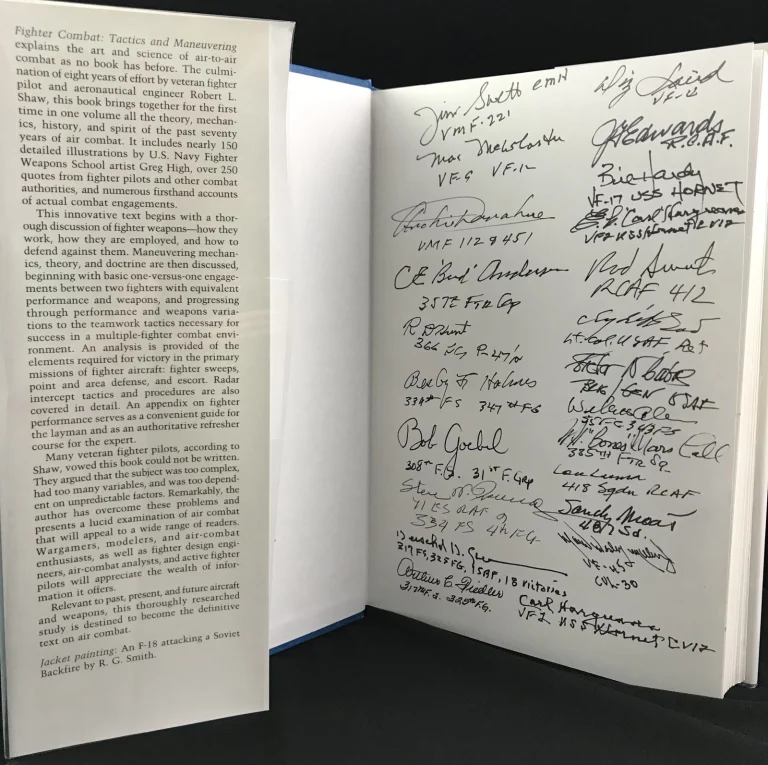 Fighter Combat: Tactics and Maneuvering
explains the art and science of air-to-air
combat as no book has before. The culmi-
nation of eight years of effort by veteran fighter
pilot and aeronautical engineer Robert L.
Shaw, this book brings together for the first
time in one volume all the theory, mechan-
ics, history, and spirit of the past seventy
years of air combat. It includes nearly 150
detailed illustrations by U.S. Navy Fighter
Weapons School artist Greg High, over 250
quotes from fighter pilots and other combat
authorities, and numerous firsthand accounts
of actual combat engagements.
This innovative text begins with a thor-
ough discussion of fighter weapons—how they
work, how they are employed, and how to
defend against them. Maneuvering mechan-
ics, theory, and doctrine are then discussed,
beginning with basic one-versus-one engage-
ments between two fighters with equivalent
performance and weapons, and progressing
through performance and weapons varia-
tions to the teamwork tactics necessary for
success in a multiple-fighter combat envi-
ronment. An analysis is provided of the
elements required for victory in the primary
missions of fighter aircraft: fighter sweeps,
point and area defense, and escort. Radar
intercept tactics and procedures are also
covered in detail. An appendix on fighter
performance serves as a convenient guide for
the layman and as an authoritative refresher
course for the expert.
Many veteran fighter pilots, according to
Shaw, vowed this book could not be written.
They argued that the subject was too complex,
had too many variables, and was too depend-
ent on unpredictable factors. Remarkably, the
author has overcome these problems and
presents a lucid examination of air combat
that will appeal to a wide range of readers.
Wargamers, modelers, and air-combat
enthusiasts, as well as fighter design engi-
neers, air-combat analysts, and active fighter
pilots will appreciate the wealth of infor-
mation it offers.
Relevant to past, present, and future aircraft
and weapons, this thoroughly researched
study is destined to become the definitive
text on air combat.
Jacket painting: An F-18 attacking a Soviet
Backfire by R. G. Smith.
Jim Swett CMH
VMF-221
VF-9 VF-12
Archie Donahue
VMF 112 & 451
CE "Bud" Anderson
357th FTR Grp
R D Hunt
366 FG P-47's
Besby F. Holmes
339th FS 347th FG
Bob Goebel
308th F.S. 31st F. Grp
Steve
71 ES RAF &
334 FS 4th FG
Herschel
317 FS, 325 FG, 15AF, 18 Victories
Arthur C. Fiedler
317th F.S. 325th FG.
Diz Laird
VF-4
Edwards
R.C.A.F.
Bill Hardy
VF-17 USS HORNET
"Carl" Hargreaves
VF2 USS Hornet CV12
Rod Smith
RCAF 412
Lt. Col. USAF Ret
GEN USAF
"Bones" Marshall
335TH FTR SQ.
418 Sqdn RCAF
Sandy Moats
487 Sq
VF-45
CVL-30
Carl Hargreaves
VF2 USS Hornet CV12